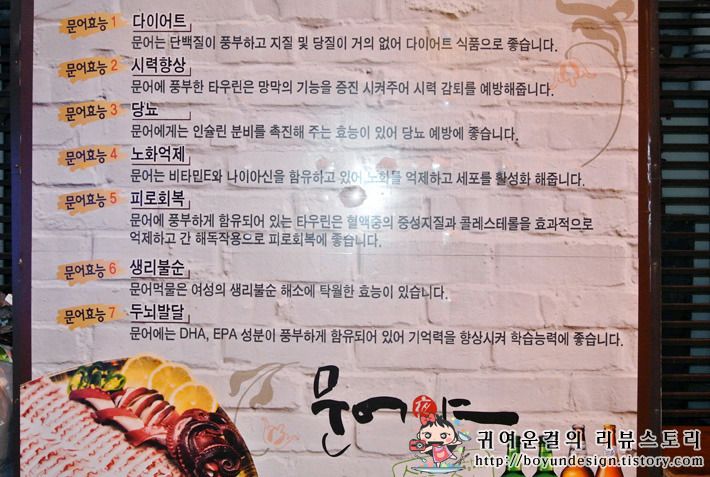 문어효능 1 다이어트
문어는 단백질이 풍부하고 지질 및 당질이 거의 없어 다이어트 식품으로 좋습니다.
문어효능 2 시력향상
문어에 풍부한 타우린은 망막의 기능을 증진 시켜주어 시력 감퇴를 예방해줍니다.
문어효능 3 당뇨
문어에게는 인슐린 분비를 촉진해 주는 효능이 있어 당뇨 예방에 좋습니다.
문어효능 4 노화억제
문어는 비타민E와 나이아신을 함유하고 있어 노화를 억제하고 세포를 활성화 해줍니다.
문어효능 5 피로회복
문어에 풍부하게 함유되어 있는 타우린은 혈액중의 중성지질과 콜레스테롤을 효과적으로
억제하고 간 해독작용으로 피로회복에 좋습니다.
문어효능 6 생리불순
문어먹물은 여성의 생리불순 해소에 탁월한 효능이 있습니다.
문어효능 7 두뇌발달
문어에는 DHA, EPA 성분이 풍부하게 함유되어 있어 기억력을 향상시켜 학습능력에 좋습니다.
문어
귀여운컬의 리뷰스토리
http://boyundesign.tistory.com